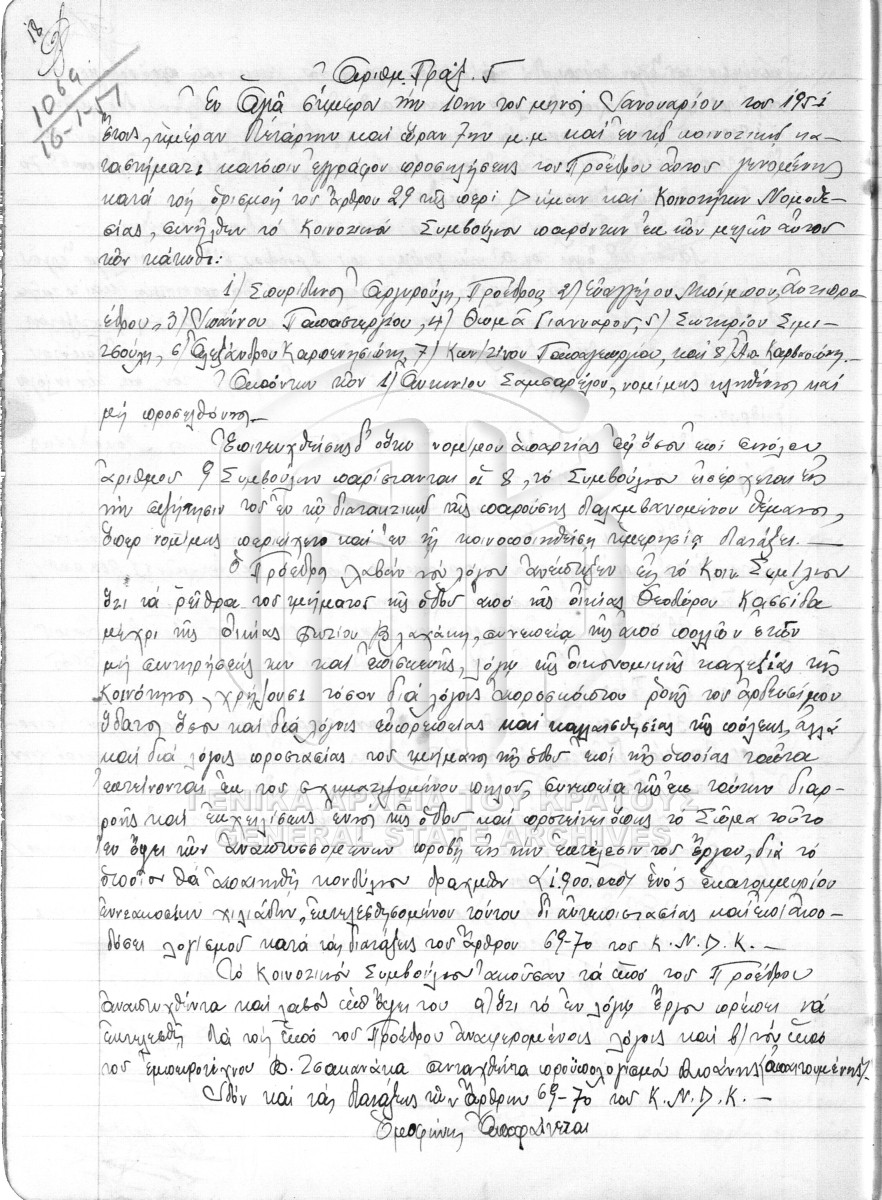 18
106α
16-1-51
Ἀριθμ. Πράξ. 5
Ἐν σήμερον τήν 10ην τοῦ μηνός Ἰανουαρίου τοῦ 1951
ἔτους, ἡμέραν Τετάρτην καί ὥραν 7ην μ.μ. καί ἐν τῷ κοινοτικῷ κα-
ταστήματι κατόπιν ἐγγράφου προσκλήσεως τοῦ Προέδρου αὐτοῦ γενομένης
κατά τούς ὁρισμούς τοῦ ἄρθρου 29 τῆς περί Δήμων καί Κοινοτήτων Νομοθε-
σίας, συνῆλθεν τό Κοινοτικόν Συμβούλιον παρόντων ἐκ τῶν μελῶν αὐτοῦ
τῶν κάτωθι:
1) Σπυρίδωνος Ἀργυρούλη, Πρόεδρος 2) Εὐαγγέλου Μπίμπου, ἀντιπρο-
έδρου, 3) Ἰωάννου Παπαστεργίου, 4) Θωμᾶ Γιανναροῦ, 5) Σωτηρίου Σιμι-
τσούλη, 6) Ἀλεξάνδρου Καρπενησιώτη, 7) Κων/τίνου Παπαγεωργίου, καί 8)
Ἀπόντων τῶν 1) Ἀντωνίου Σαμσαρέλου, νομίμως κληθέντος καί
μή προσελθόντος.
Ἐπιτευχθείσης δ' οὕτω νομίμου ἀπαρτίας ἐφ' ὅσον ἐπί συνόλου
ἀριθμοῦ 9 Συμβούλων παρίστανται οἱ 8, τό Συμβούλιον εἰσέρχεται εἰς
τήν συζήτησιν τοῦ ἐν τῷ διατακτικῷ τῆς παρούσης διαλαμβανομένου θέματος,
ὅπερ νομίμως περιείχετο καί ἐν τῇ κοινοποιηθείσῃ ἡμερησίᾳ διατάξει. —
Ὁ Πρόεδρος λαβών τόν λόγον ἀνέπτυξεν εἰς τό Κοιν. Συμ/λιον
ὅτι τά ρεῖθρα τοῦ τμήματος τῆς ὁδοῦ ἀπό τῆς οἰκίας Θεοδώρου Κασσίδα
μέχρι τῆς οἰκίας Φωτίου Βλαχάκη, συνεπείᾳ τῆς ἀπό πολλῶν ἐτῶν
μή συντηρήσεώς των καί ἐπισκευῆς, λόγῳ τῆς οἰκονομικῆς καχεξίας τῆς
Κοινότητος, χρήζουσι τόσον διά λόγους ἀπροσκόπτου ροῆς τοῦ ἀρδευσίμου
ὕδατος ὅσον καί διά λόγους εὐπρεπείας καί καλαισθησίας τῆς πόλεως, ἀλλά
καί διά λόγους προστασίας τοῦ τμήματος τῆς ὁδοῦ ἐπί τῆς ὁποίας ταῦτα
ἐκτείνονται ἐκ τοῦ σχηματιζομένου πηλοῦ, συνεπείᾳ τῆς ἐκ τούτων διαρ-
ροῆς καί ἐκχειλίσεως ἐντός τῆς ὁδοῦ καί προτείνει ὅπως τό Σῶμα τοῦτο
ἐν ὄψει τῶν ἀναπτυσσομένων προβῇ εἰς τήν ἐκτέλεσιν τοῦ ἔργου, διά τό
ὁποῖον θά ἀπαιτηθῇ κονδύλιον δραχμῶν (1.900.000) ἑνός ἑκατομμυρίου
ἐννεακοσίων χιλιάδων, ἐκτελεσθησομένου τούτου δι' αὐτεπιστασίας καί ἐπί ἀπο-
δόσει λογισμοῦ κατά τάς διατάξεις τοῦ ἄρθρου 69-70 τοῦ Κ.Ν.Δ.Κ. —
Τό Κοινοτικόν Συμβούλιον ἀκοῦσαν τά ὑπό τοῦ Προέδρου
ἀναπτυχθέντα καί λαβόν ὑπ' ὄψει του α) ὅτι τό ἐν λόγῳ ἔργον πρέπει νά
ἐκτελεσθῇ διά τούς ὑπό τοῦ Προέδρου ἀναφερομένους λόγους καί β) τόν ὑπό
τοῦ ἐμπειροτέχνου Β. Τσακανάκα συνταχθέντα προϋπολογισμόν
Ἰδόν καί τάς διατάξεις τῶν ἄρθρων 69-70 τοῦ Κ.Ν.Δ.Κ. —
Ὁμοφώνως Ἀποφαίνεται
ΓΕΝΙΚΑ ΑΡΧΕΙΑ ΤΟΥ ΚΡΑΤΟΥΣ
GENERAL STATE ARCHIVES